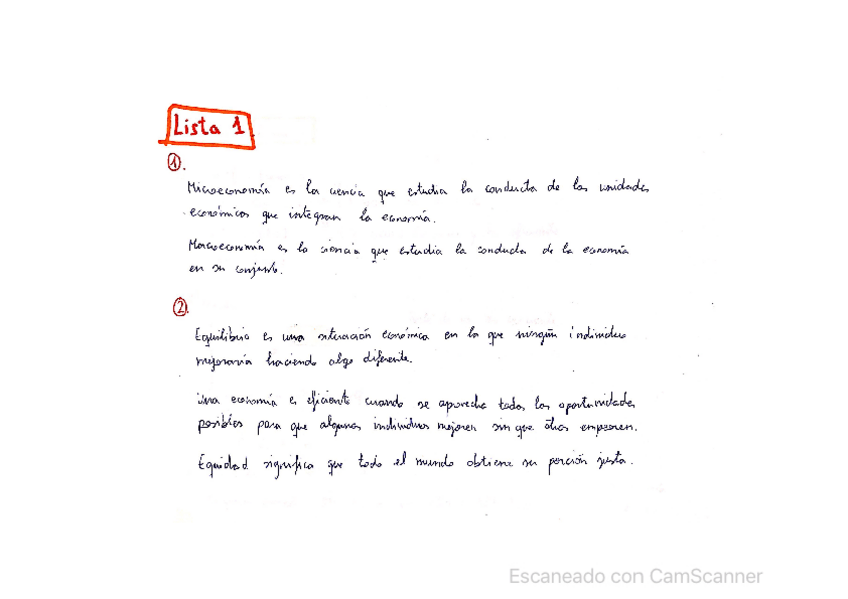 Lista 1
①.
Microeconomía es la ciencia que estudia la conducta de las unidades
económicas que integran la economía.
Macroeconomía es la ciencia que estudia la conducta de la economía
en su conjunto.
②.
Equilibrio es una situación económica en la que ningún individuo
mejoraría haciendo algo diferente.
Una economía es eficiente cuando se aprovecha todas las oportunidades
posibles para que algunos individuos mejoren sin que otros empeoren.
Equidad significa que todo el mundo obtiene su porción justa.
Escaneado con CamScanner